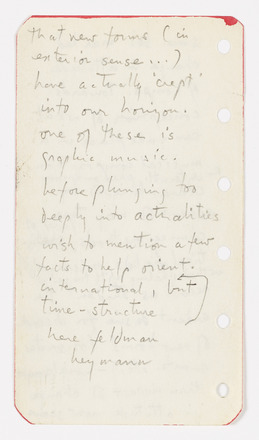 that new forms (in
exterior sense...)
have actually "crept"
into our horizon.
one of these is
graphic music.
before plunging too
deeply into actualities
wish to mention a few
facts to help orient.
international, but
time-structure
here feldman
heymann